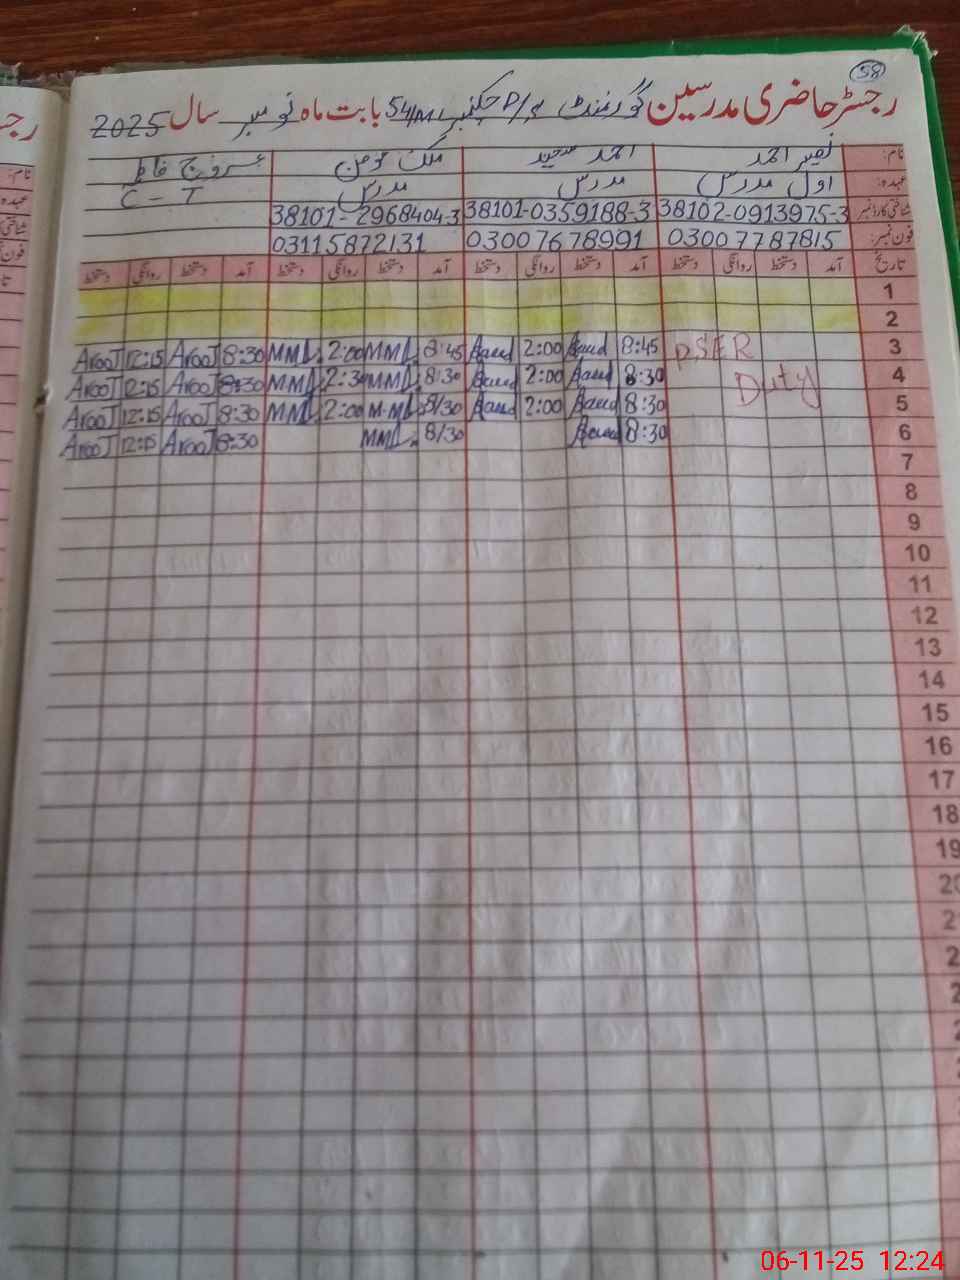 58
رجسٹر حاضری مدرسین گورنمنٹ P/S چک نمبر 54/ML بابت ماہ نومبر سال 2025
نام: نصیر احمد احمد ملک مومن عروج فاطمہ
عہدہ: اول مدرس مدرس مدرس C - T
شناختی کارڈ نمبر 38102-0913975-3 38101-0359188-3 38101-2968404-3
فون نمبر: 03007787815 03007678991 03115872131
تاریخ آمد دستخط روانگی دستخط آمد دستخط روانگی دستخط آمد دستخط روانگی دستخط آمد دستخط روانگی دستخط
1
2
3 PSER 8:45 2:00 8:45 MML 2:00 MML 8:30 AROOJ 12:15 AROOJ
4 Duty 8:30 2:00 8:30 MML 2:30 MML 8:30 AROOJ 12:15 AROOJ
5 8:30 2:00 8/30 MML 2:00 MML 8:30 AROOJ 12:15 AROOJ
6 8:30 8/30 MML 8:30 AROOJ 12:15 AROOJ
7
8
9
10
11
12
13
14
15
16
17
18
19
06-11-25 12:24